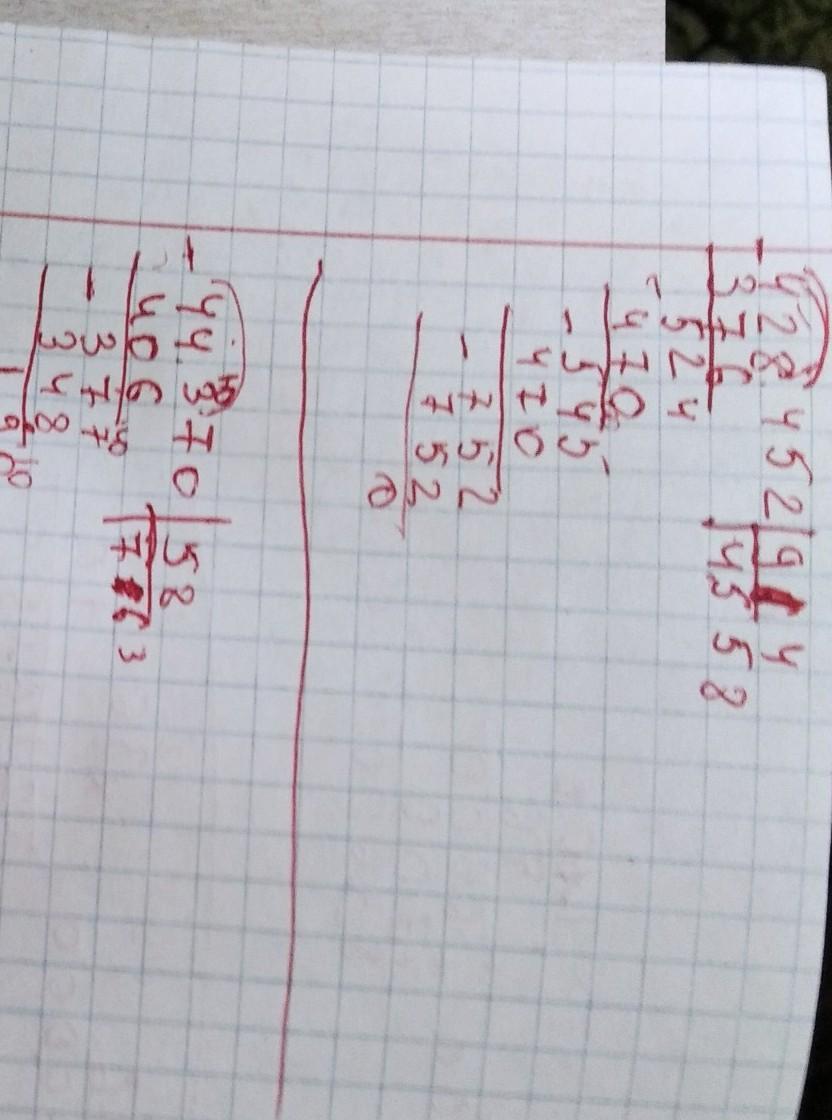 - 428452 | 94
376 | 4558
- 524
470
- 545
470
- 752
752
0
10
- 44370 | 58
406 | 763
10
- 377
348
10